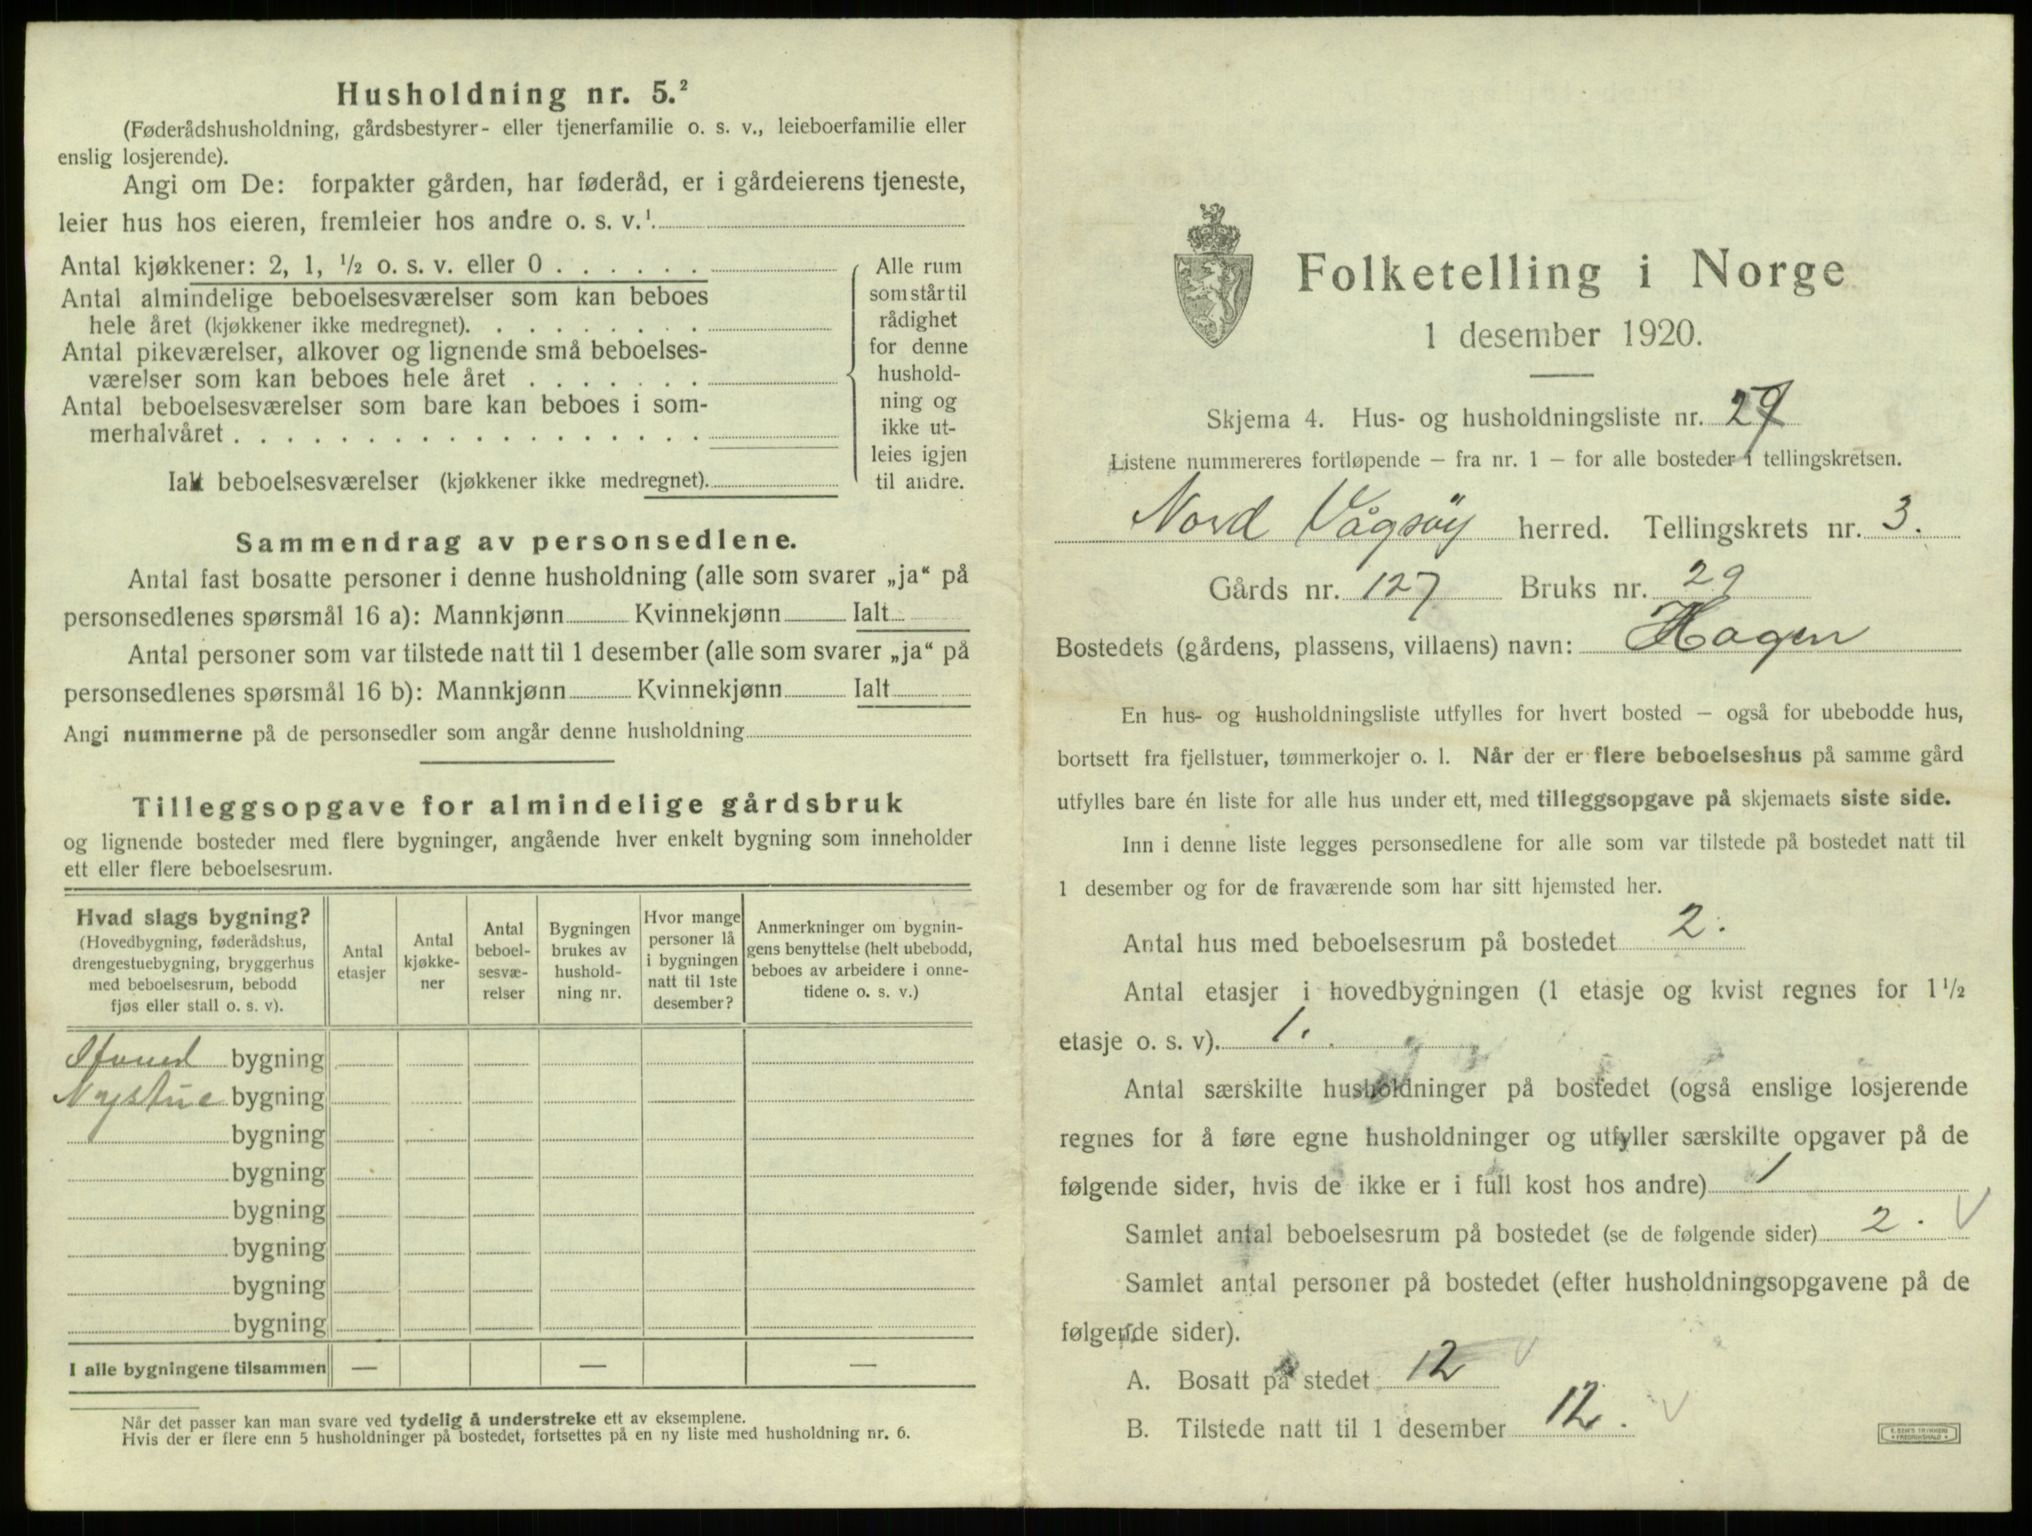 Husholdning nr. 5.²
(Føderådshusholdning, gårdsbestyrer- eller tjenerfamilie o. s. v., leieboerfamilie eller
enslig losjerende).
Angi om De: forpakter gården, har føderåd, er i gårdeierens tjeneste,
leier hus hos eieren, fremleier hos andre o. s. v.¹
Antal kjøkkener: 2, 1, ½ o. s. v. eller 0 . . . . . .
Antal almindelige beboelsesværelser som kan beboes
hele året (kjøkkener ikke medregnet). . . . . . . . .
Antal pikeværelser, alkover og lignende små beboelses-
værelser som kan beboes hele året . . . . . . .
Antal beboelsesværelser som bare kan beboes i som-
merhalvåret . . . . . . . . . . . . . . . . . .
Ialt beboelsesværelser (kjøkkener ikke medregnet).
Alle rum
som står til
rådighet
for denne
hushold-
ning og
ikke ut-
leies igjen
til andre.
Sammendrag av personsedlene.
Antal fast bosatte personer i denne husholdning (alle som svarer „ja“ på
personsedlenes spørsmål 16 a): Mannkjønn Kvinnekjønn Ialt
Antal personer som var tilstede natt til 1 desember (alle som svarer „ja“ på
personsedlenes spørsmål 16 b): Mannkjønn Kvinnekjønn Ialt
Angi nummerne på de personsedler som angår denne husholdning
Tilleggsopgave for almindelige gårdsbruk
og lignende bosteder med flere bygninger, angående hver enkelt bygning som inneholder
ett eller flere beboelsesrum.
Hvad slags bygning?
(Hovedbygning, føderådshus,
drengestuebygning, bryggerhus
med beboelsesrum, bebodd
fjøs eller stall o. s. v).
Antal
etasjer
Antal
kjøkke-
ner
Antal
beboel-
sesvæ-
relser
Bygningen
brukes av
hushold-
ning nr.
Hvor mange
personer lå
i bygningen
natt til 1ste
desember?
Anmerkninger om bygnin-
gens benyttelse (helt ubebodd,
beboes av arbeidere i onne-
tidene o. s. v.)
bygning
Nystue bygning
bygning
bygning
bygning
bygning
bygning
bygning
I alle bygningene tilsammen — — —
Når det passer kan man svare ved tydelig å understreke ett av eksemplene.
Hvis der er flere enn 5 husholdninger på bostedet, fortsettes på en ny liste med husholdning nr. 6.
Folketelling i Norge
1 desember 1920.
Skjema 4. Hus- og husholdningsliste nr.
Listene nummereres fortløpende — fra nr. 1 — for alle bosteder i tellingskretsen.
Nord Vågsøy herred. Tellingskrets nr. 3.
Gårds nr. 127 Bruks nr. 29
Bostedets (gårdens, plassens, villaens) navn: Hagen
En hus- og husholdningsliste utfylles for hvert bosted — også for ubebodde hus,
bortsett fra fjellstuer, tømmerkojer o. l. Når der er flere beboelseshus på samme gård
utfylles bare én liste for alle hus under ett, med tilleggsopgave på skjemaets siste side.
Inn i denne liste legges personsedlene for alle som var tilstede på bostedet natt til
1 desember og for de fraværende som har sitt hjemsted her.
Antal hus med beboelsesrum på bostedet 2.
Antal etasjer i hovedbygningen (1 etasje og kvist regnes for 1½
etasje o. s. v). 1.
Antal særskilte husholdninger på bostedet (også enslige losjerende
regnes for å føre egne husholdninger og utfyller særskilte opgaver på de
følgende sider, hvis de ikke er i full kost hos andre) 1
Samlet antal beboelsesrum på bostedet (se de følgende sider) 2.
Samlet antal personer på bostedet (efter husholdningsopgavene på de
følgende sider).
A. Bosatt på stedet 12
B. Tilstede natt til 1 desember 12.